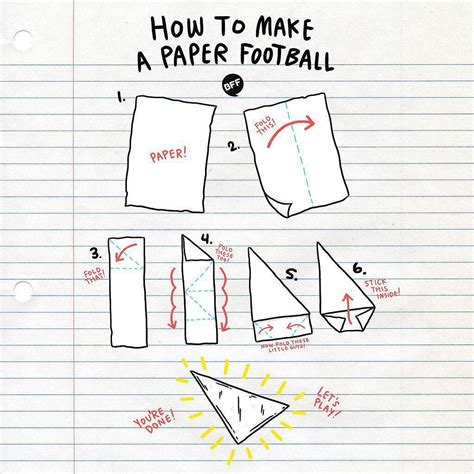 HOW TO MAKE
A PAPER FOOTBALL
BFF
1.
PAPER!
2.
FOLD
THIS!
3.
FOLD
THAT!
4.
FOLD
THESE
TOO!
5.
NOW FOLD THESE
LITTLE GUYS!
6.
STICK
THIS
INSIDE!
YOU'RE
DONE!
LET'S
PLAY!